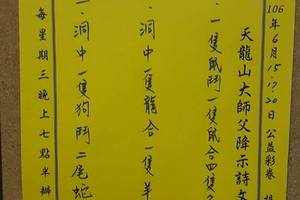 106年6月15.17.20日公益彩卷
天龍山大師父降示詩文
一隻鼠鬥一隻鼠合四隻
洞中一隻龍合一隻羊
洞中一隻狗鬥二尾蛇
每星期三晚上七點半辦